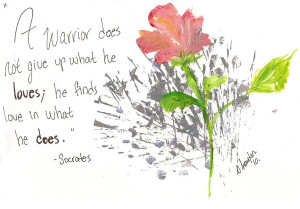 "A Warrior does
not give up what he
loves; he finds
love in what
he does."
-Socrates